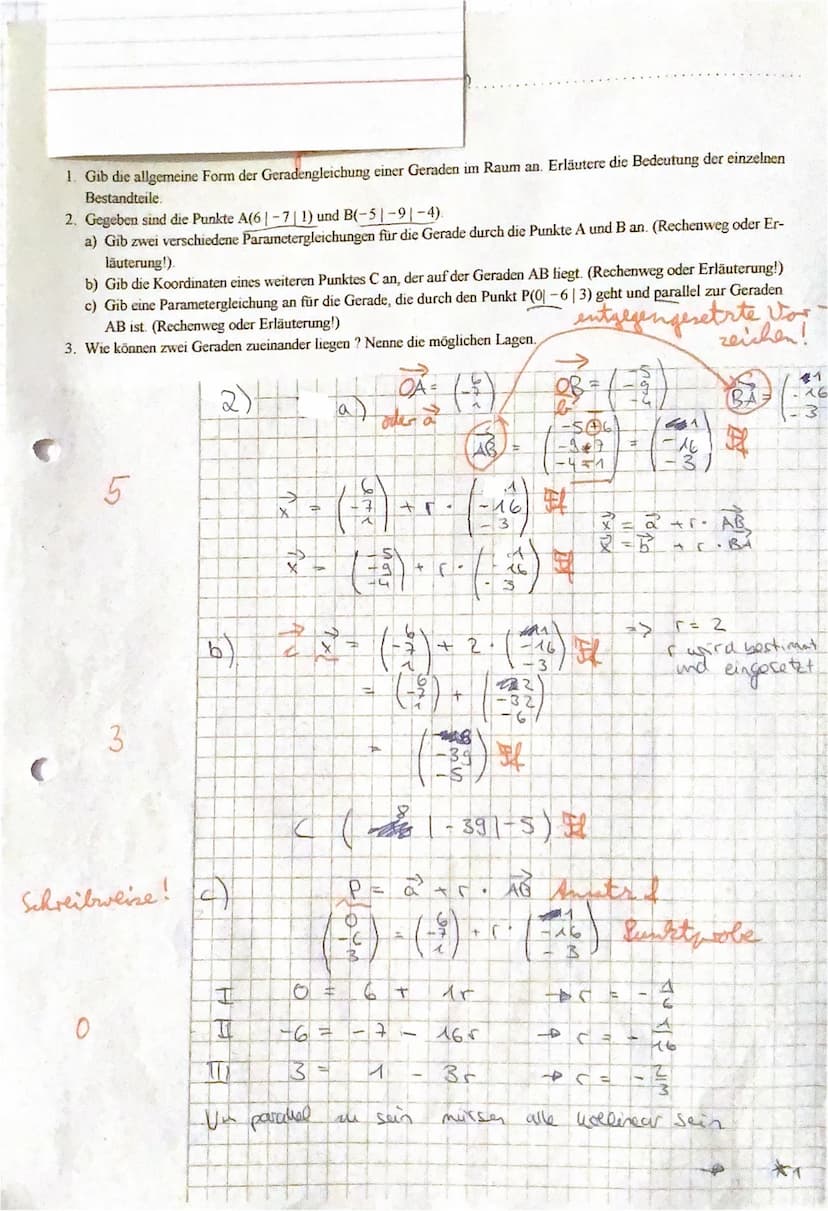 1. Gib die allgemeine Form der Geradengleichung einer Geraden im Raum an. Erläutere die Bedeutung der einzelnen
Bestandteile.
2. Gegeben sind die Punkte A(6 | −7 | 1) und B(−5 | −9 | −4).
a) Gib zwei verschiedene Parametergleichungen für die Gerade durch die Punkte A und B an. (Rechenweg oder Er-
läuterung!).
b) Gib die Koordinaten eines weiteren Punktes C an, der auf der Geraden AB liegt. (Rechenweg oder Erläuterung!)
c) Gib eine Parametergleichung an für die Gerade, die durch den Punkt P(0| −6 | 3) geht und parallel zur Geraden
AB ist. (Rechenweg oder Erläuterung!)
3. Wie können zwei Geraden zueinander liegen ? Nenne die möglichen Lagen.
entgegengesetzte Vor-
zeichen!
2) a) OA = (6 -7 1) OB = (-5 -9 -4) BA = (1 -16 -3)
oder a b
AB = (-5+6 -9+7 -4+1) = (1 -16 -3)
5
x = (6 -7 1) + r · (1 -16 -3)
x = a + r · AB
x = b + r · BA
x = (-5 -9 -4) + r · (1 16 3)
b) c x = (6 -7 1) + 2 · (1 -16 -3) => r = 2
r wird bestimmt
und eingesetzt
= (6 -7 1) + (2 -32 -6)
3
= (8 -39 -5)
C (8 | -39 | -5)
Schreibweise! c) P = a + r · AB Ansatz f
(0 -6 3) = (6 -7 1) + r · (1 -16 -3) Punktprobe
I 0 = 6 + 1r → r = - 1/6
0
II -6 = -7 - 16r → r = - 1/16
III 3 = 1 - 3r → r = - 2/3
Um parallel zu sein müssen alle kollinear sein
→ *1